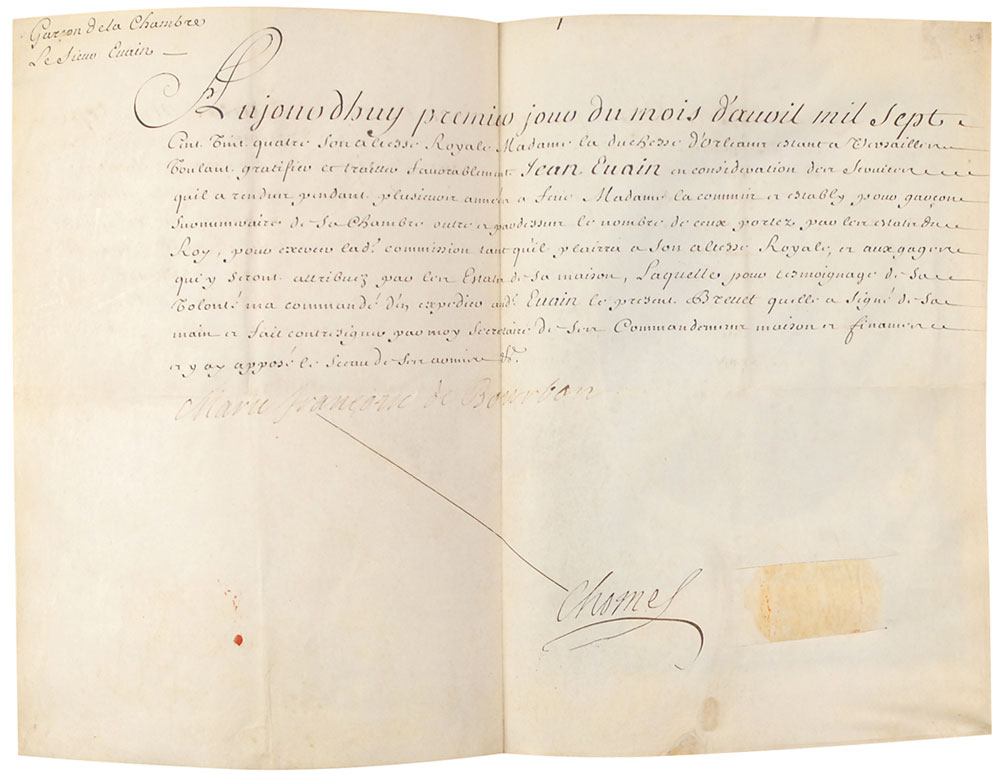 Garçon de la Chambre
Le Sieur Evain
Aujourdhuy premier jour du mois d'avril mil sept
Cent Vint quatre Son altesse Royale Madame la duchesse d'Orleans estant a Versailles
Voulant gratifier et traitter favorablement Jean Evain en consideration des services
quil a rendus pendant plusieurs années a feüe Madame la commis et estably pour garçon
Surnumeraire de sa Chambre outre et pardessus le nombre de ceux portez par les estats du
Roy, pour exercer lad. commission tant quil plairra a Son altesse Royale, et aux gages
qui y seront attribuez par les Estats de sa maison, Laquelle pour tesmoignage de sa
Volonté ma commandé d'en expedier aud. Evain le present Brevet quelle a signé de sa
main et fait contresigner par moy Secretaire de ses Commandemens maison et finances
et y ay apposé le sceau de ses armes &c.
Marie françoise de Bourbon
Chomel